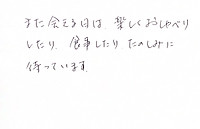 また会える日は、楽しくおしゃべり
したり、食事したり たのしみに
待っています